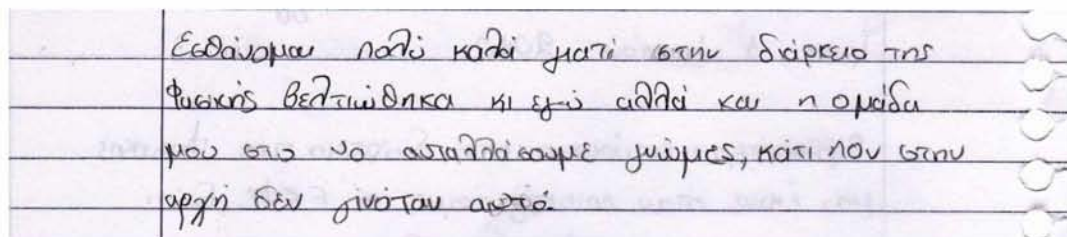 Εσθάνομαι πολύ καλά γιατί στην διάρκεια της
Φυσικής βελτιώθηκα κι εγώ αλλά και η ομάδα
μου στο να ανταλλάσουμε γνώμες, κάτι που στην
αρχή δεν γινόταν αυτό.